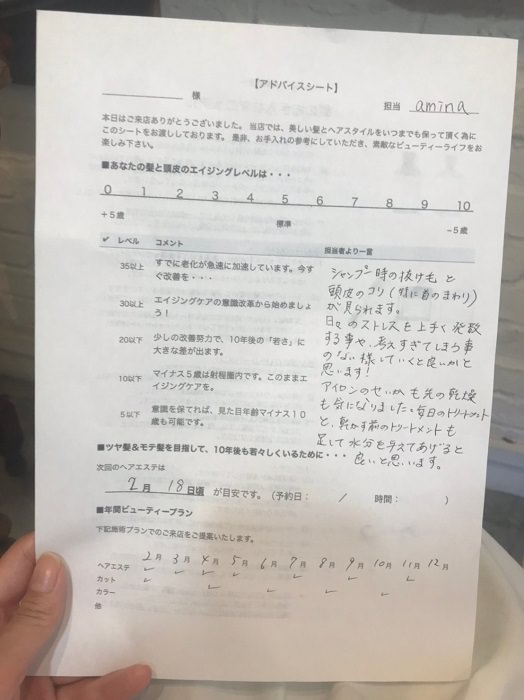 【アドバイスシート】
様
担当 amina
本日はご来店ありがとうございました。当店では、美しい髪とヘアスタイルをいつまでも保って頂く為に
このシートをお渡ししております。是非、お手入れの参考にしていただき、素敵なビューティーライフをお
楽しみ下さい。
■あなたの髪と頭皮のエイジングレベルは・・・
0 1 2 3 4 5 6 7 8 9 10
+5歳 標準 −5歳
✓ レベル コメント 担当者より一言
35以上 すでに老化が急速に加速しています。今す
ぐ改善を・・・
30以上 エイジングケアの意識改革から始めましょ
う!
20以下 少しの改善努力で、10年後の「若さ」に
大きな差が出ます。
10以下 マイナス5歳は射程圏内です。このままエ
イジングケアを。
5以下 意識を保てれば、見た目年齢マイナス10
歳も可能です。
シャンプー時の抜け毛と
頭皮のコリ(特に首のまわり)
が見られます。
日々のストレスを上手く発散
する事や、考えすぎてしまう事
のない様していくと良いかと
思います!
アイロンのせいかも先の乾燥
も気になりました。毎日のトリートメント
と、乾かす前のトリートメントも
足して水分を与えてあげると
良いと思います。
■ツヤ髪&モテ髪を目指して、10年後も若々しくいるために・・・
次回のヘアエステは
2月 18日頃 が目安です。(予約日: / 時間: )
■年間ビューティープラン
下記施術プランでのご来店をご提案いたします。
2月 3月 4月 5月 6月 7月 8月 9月 10月 11月 12月
ヘアエステ ✓ ✓ ✓ ✓ ✓ ✓ ✓
カット ✓ ✓ ✓ ✓ ✓
カラー
他